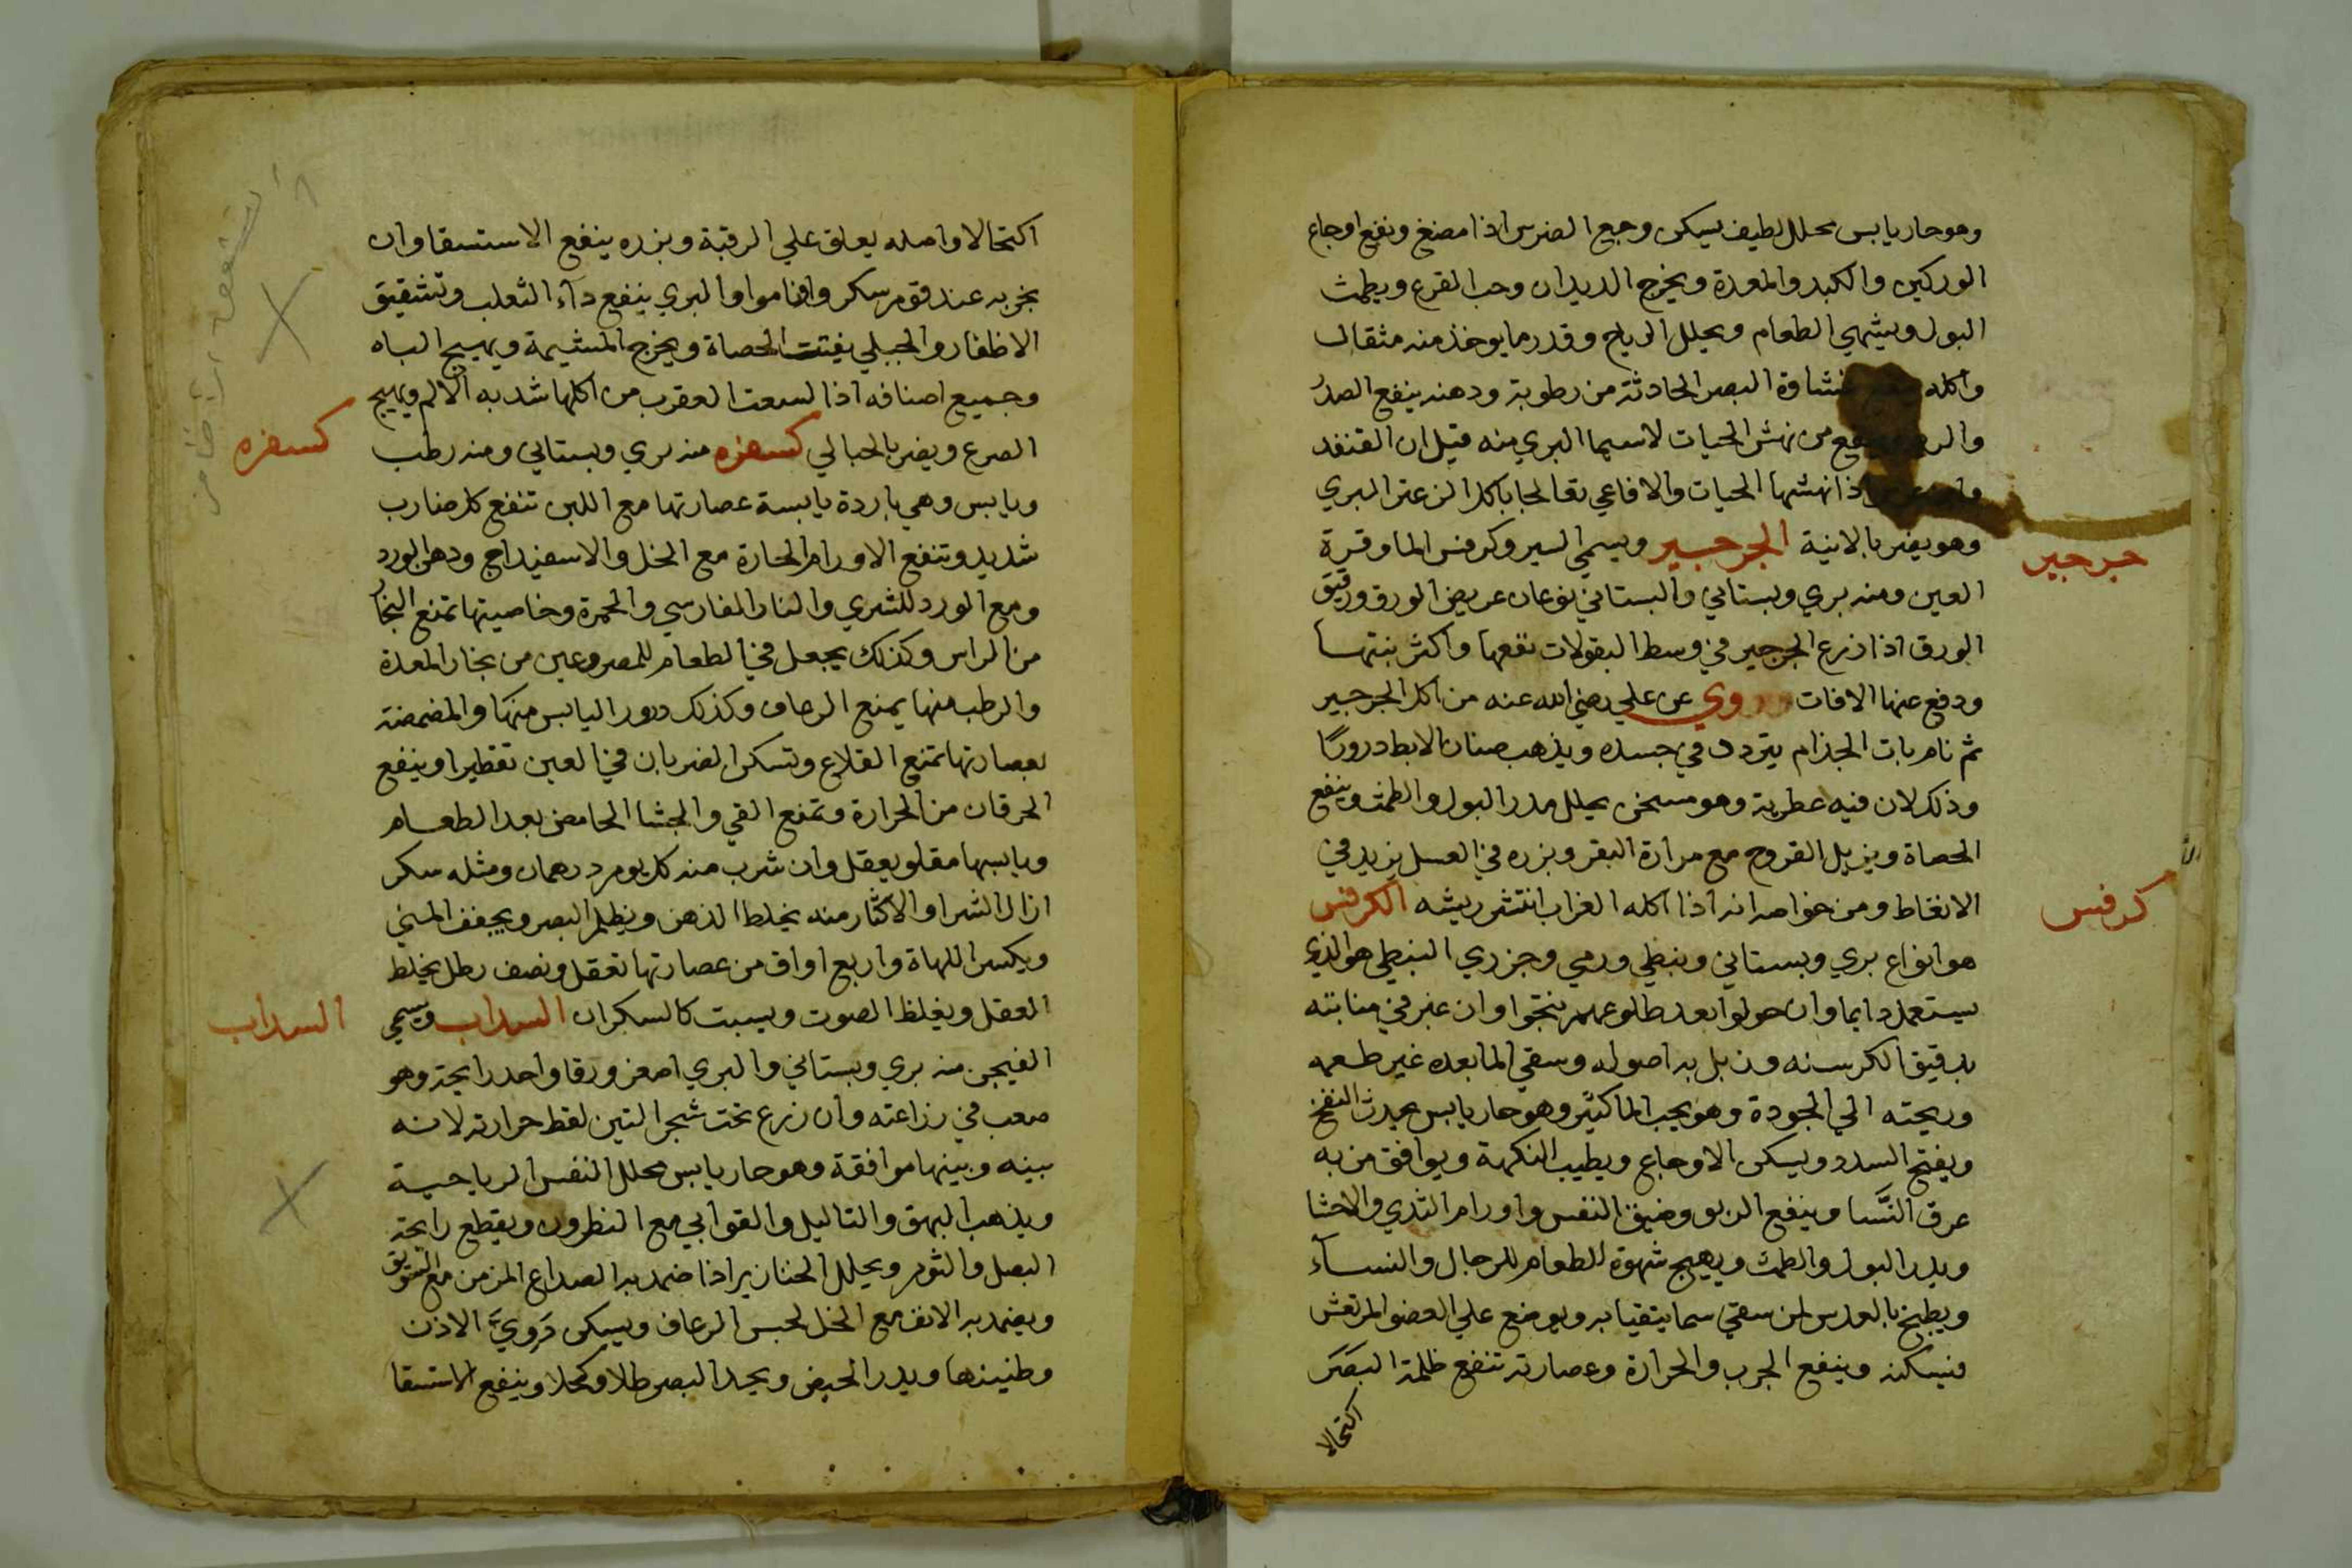 وهو حار يابس محلل لطيف يسكن وجع الضرس اذا مضغ وينفع اوجاع
الوركين والكبد والمعدة ويخرج الديدان وحب القرع ويطمث
البول ويشهي الطعام ويحلل الرياح وقدر ما يوخذ منه مثقال
واكله غشاوة البصر الحادثة من رطوبة ودهنه ينفع الصدر
من نهش الحيات لاسيما البري منه قيل ان القنفد
اذا نهشها الحيات والافاعي تعالجا باكل الزعتر البري
وهو يضر بالانية الجرجير ويسمي السير وكرفس الما وقرة
العين ومنه بري وبستاني والبستاني نوعان عريض الورق ورقيق
الورق اذا زرع الجرجير في وسط البقولات نفعها واكثر بنتها
ودفع عنها الافات وروي عن علي رضي الله عنه من اكل الجرجير
ثم نام بات الجذام يتردد في جسده ويذهب صنان الابط درورًا
وذلك لان فيه عطرية وهو مسخن يحلل مدر البول والطمث وينفع
الحصاة ويزيل القروح مع مرارة البقر وبزره في العسل يزيد في
الانعاظ ومن خواصه انه اذا اكله الغراب انتثر ريشه الكرفس
هو انواع بري وبستاني ونبطي ورمي وجزري النبطي هو الذي
يستعمل دايما وان حولوا بعد طلوعهم نتجوا وان غبر في منابته
بدقيق الكرسنه وزبل به اصوله وسقي الما بعده غير طعمه
وريحته الي الجودة وهو يحب الما كثير وهو حار يابس يحدث النفخ
ويفتح السدد ويسكن الاوجاع ويطيب النكهة ويوافق من به
عرق النَّسا وينفع الربو وضيق النفس واورام الثدي والاحشا
ويدر البول والطمث ويهيج شهوة الطعام للرجال والنسآء
ويطبخ بالعدس لمن سقي سما يتقيا به ويوضع علي العضو المرتعش
فيسكنه وينفع الجرب والحرارة وعصارته تنفع ظلمة البصر
اكتحالا
جرجير
كرفس
اكتحالا واصله يعلق علي الرقبة وبزره ينفع الاستسقا وان
بخر به عند قوم سكر واناموا والبري ينفع دآء الثعلب وتشقيق
الاظفار والجبلي يفتت الحصاة ويخرج المشيمة ويهيج الباه
وجميع اصنافه اذا لسعت العقرب من اكلها شد به الالم ويهيج
الصرع ويضر بالحبالي كسفره منه بري وبستاني ومنه رطب
ويابس وهي باردة يابسة عصارتها مع اللبن تنفع كل ضارب
شديد وتنفع الاورام الحارة مع الخل والاسفيداج ودهن الورد
ومع الورد للشري والنار الفارسي والحمرة وخاصيتها تمنع البخار
من الراس وكذلك يجعل في الطعام للمصروعين من بخار المعدة
والرطب منها يمنع الرعاف وكذلك درور اليابس منها والمضمضة
بعصارتها تمنع القلاع وتسكن الضربان في العين تقطيرا وينفع
الحرقان من الحرارة وتمنع القي والجشا الحامض بعد الطعام
ويابسها مقلو يعقل وان شرب منه كل يوم درهمان ومثله سكر
ازال الشرا والاكثار منه يخلط الذهن ويظلم البصر ويجفف المني
ويكسر اللهاة واربع اواق من عصارتها تعقل ونصف رطل يخلط
العقل ويغلظ الصوت ويسبت كالسكران السداب ويسمي
الفيجن منه بري وبستاني والبري اصغر ورقا واحد رايحة وهو
صعب في زراعته وان زرع تحت شجر التين لقط حرارته لانه
بينه وبينها موافقة وهو حار يابس محلل النفس الرياحية
ويذهب البهق والتاليل والقوابي مع النطرون ويقطع رايحة
البصل والثوم ويحلل الخنازير اذا ضمد به الصداع المزمن مع السويق
ويضمد به الانف مع الخل لحبس الرعاف ويسكن دَويَّ الاذن
وطنينها ويدر الحيض ويحد البصر طلا وكحلا وينفع الاستسقا
كسفره
السداب